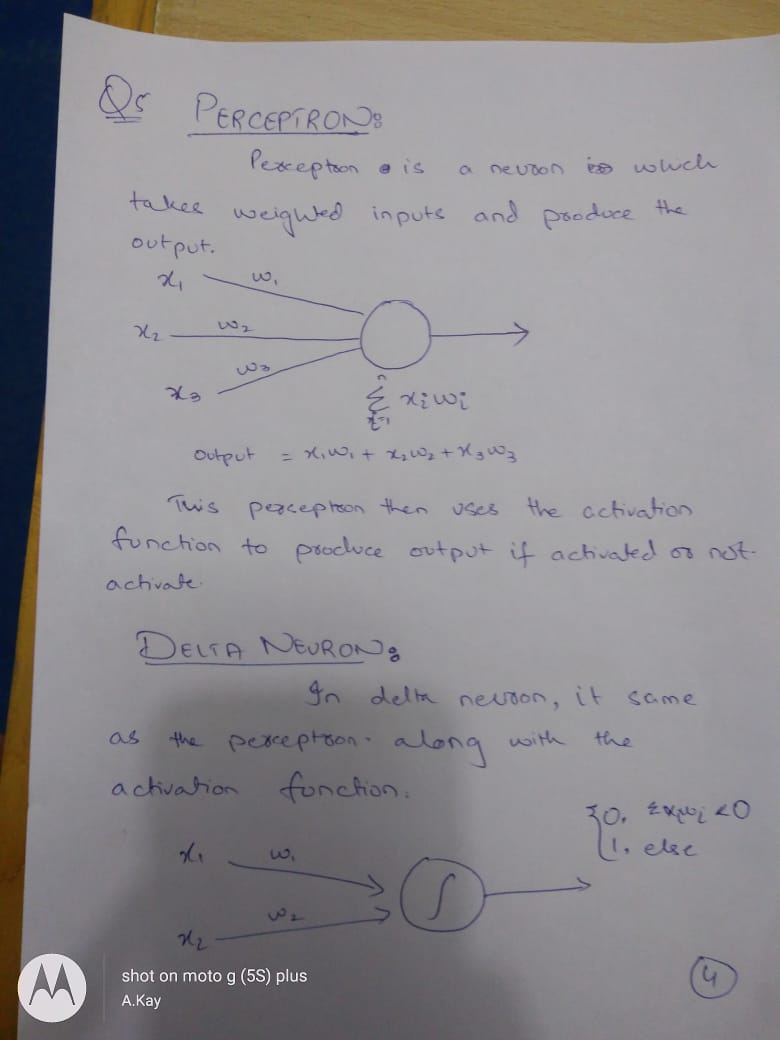 Q5 PERCEPTRON:
Perceptron is a neuron which
takes weighted inputs and produce the
output.
x₁ w₁
x₂ w₂
x₃ w₃
n
∑ xᵢwᵢ
i=1
output = x₁w₁ + x₂w₂ + x₃w₃
This perceptron then uses the activation
function to produce output if activated or not
activate.
DELTA NEURON:
In delta neuron, it same
as the perceptron. along with the
activation function.
{0, ∑xᵢwᵢ <0
1, else
x₁ w₁
∫
x₂ w₂
4
shot on moto g (5S) plus
A.Kay